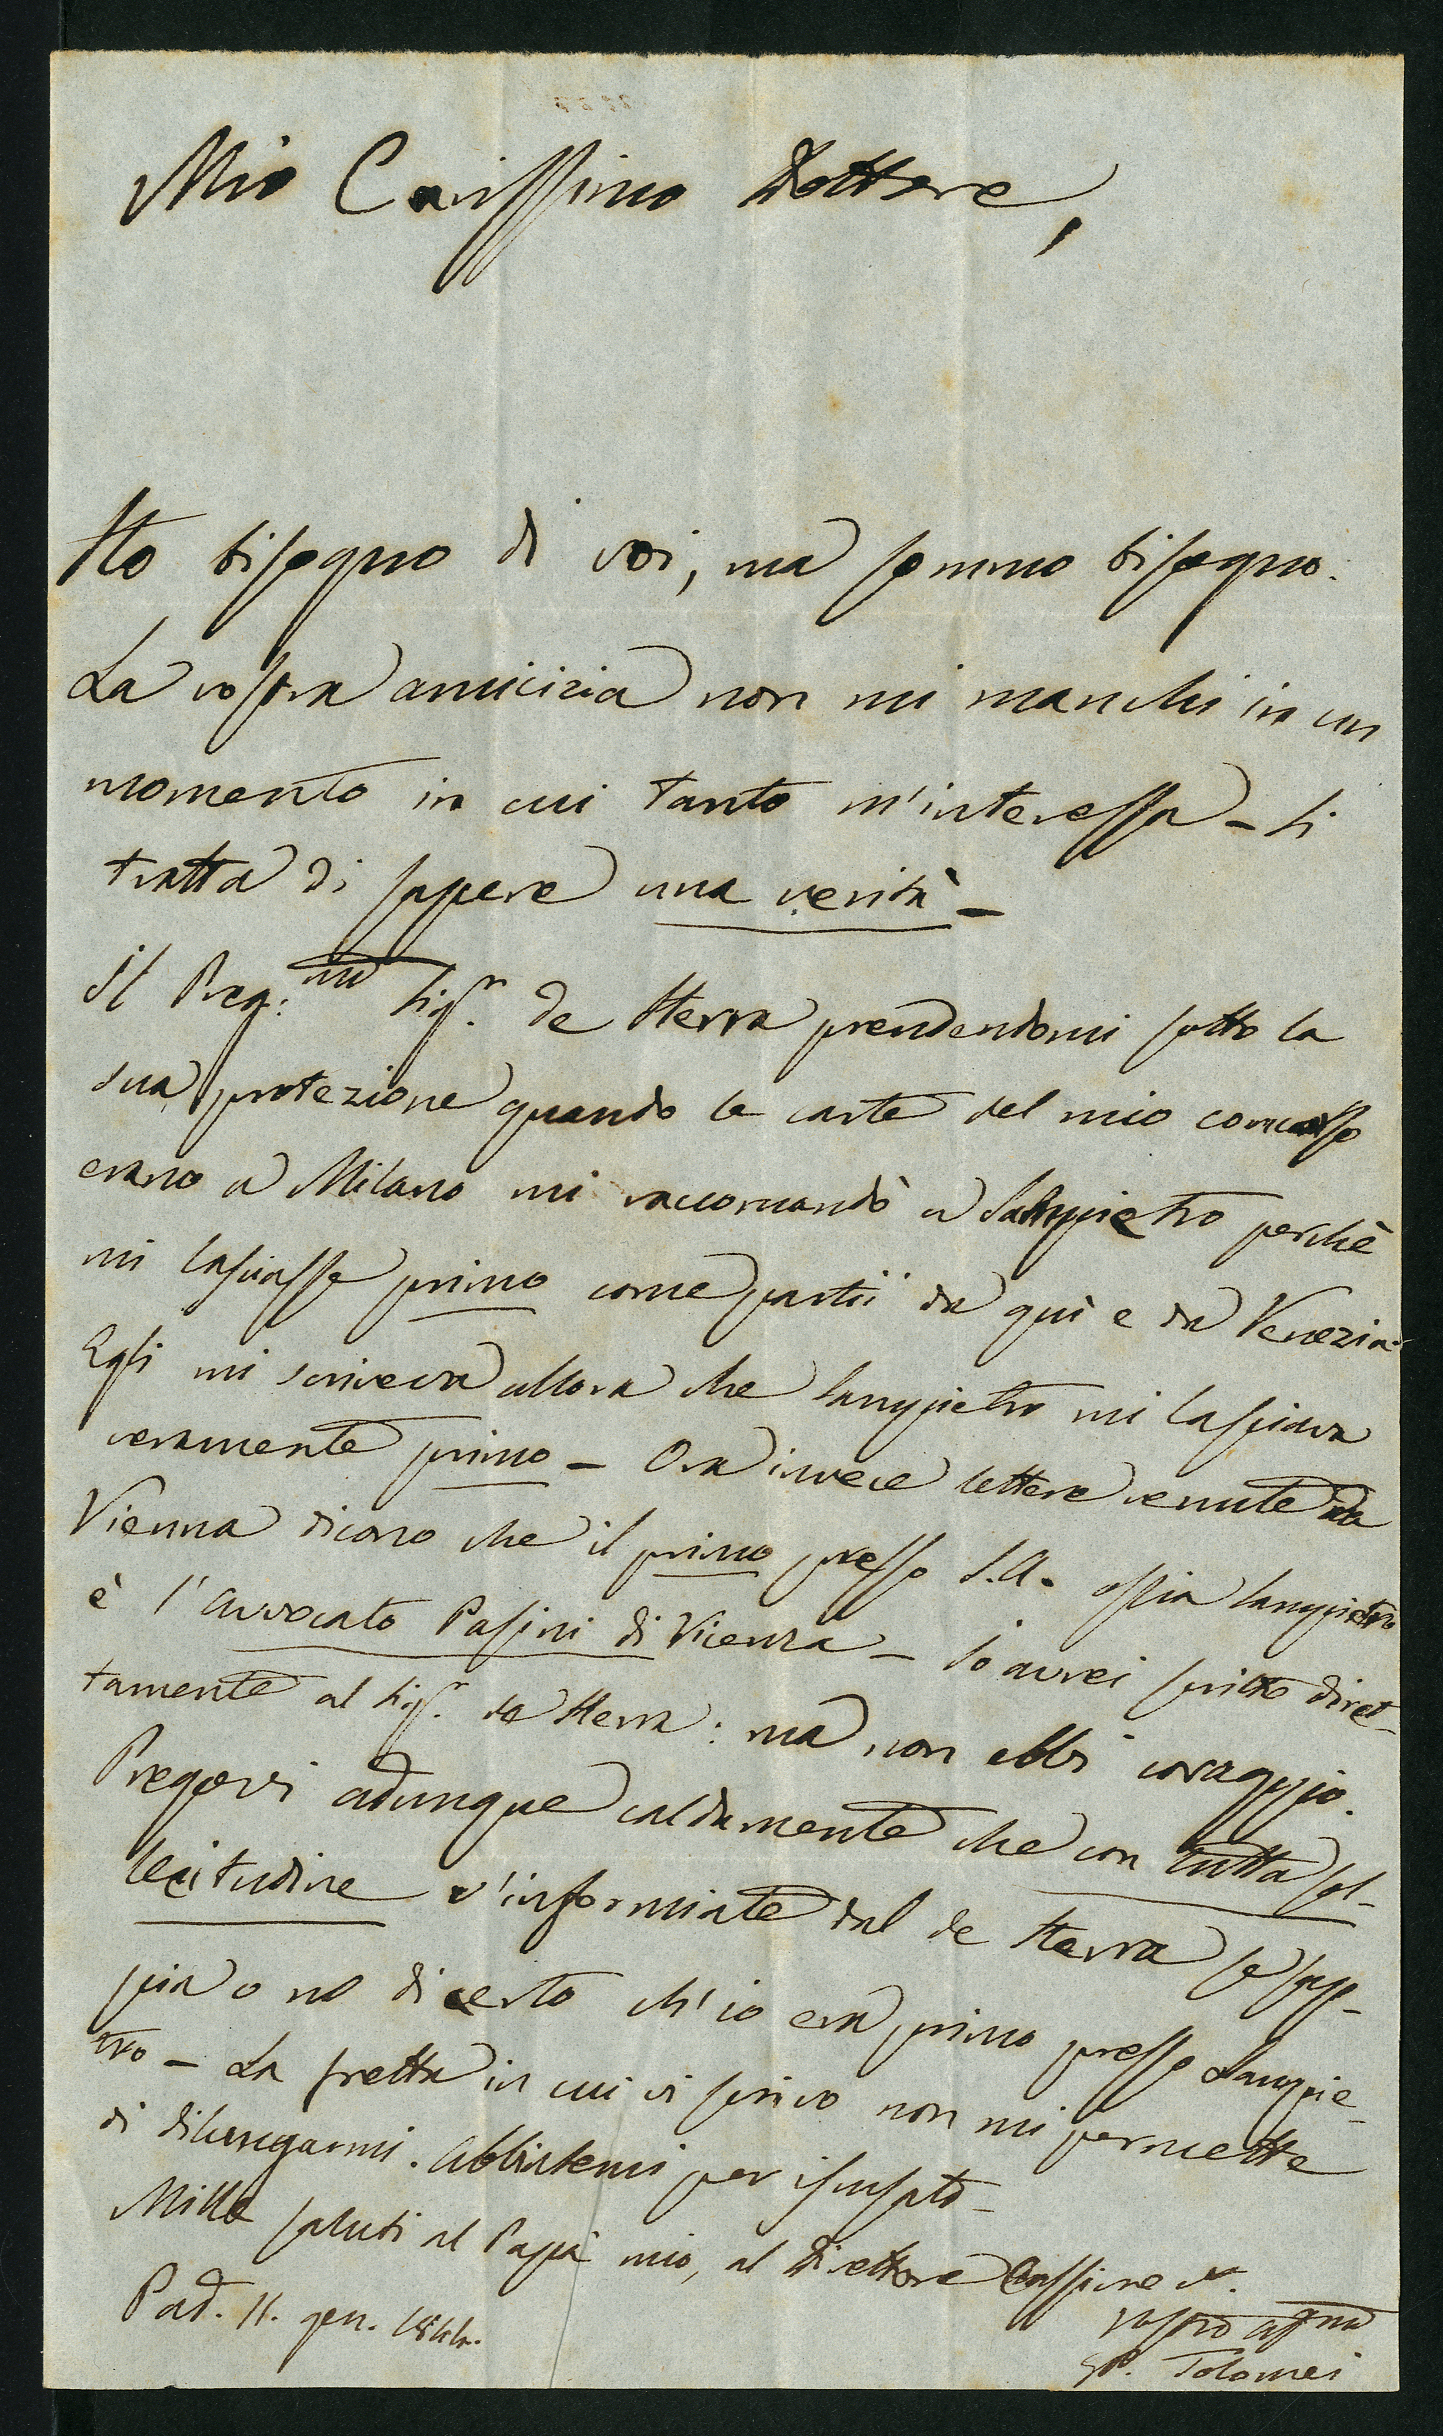 Mio Carissimo Dottore,
Ho bisogno di voi, ma sommo bisogno.
La vostra amicizia non mi manchi in un
momento in cui tanto m'interessa - Si
tratta di sapere una verità -
Il Preg:mo Sigr. de Herra prendendomi sotto la
sua protezione quando le carte del mio concorso
erano a Milano mi raccomandò a Sampietro perchè
mi lasciasse primo come partii da quì e da Venezia.
Egli mi scriveva allora che Sampietro mi lasciava
veramente primo - Ora invece lettere venute da
Vienna dicono che il primo presso S.A. ossia Sampietro
è l'avvocato Pasini di Vicenza - Io avrei scritto diret-
tamente al Sigr. de Herra: ma non ebbi coraggio.
Pregovi adunque caldamente che con tutta sol-
lecitudine v'informiate dal de Herra se sap-
pia o no di certo ch'io era primo presso Sampie-
tro - La fretta in cui vi scrivo non mi permette
di dilungarmi. Abbiatemi per iscusato -
Mille saluti al Papà mio, al Direttore
Pad. 11. gen. 1844.
vostro
GP. Tolomei